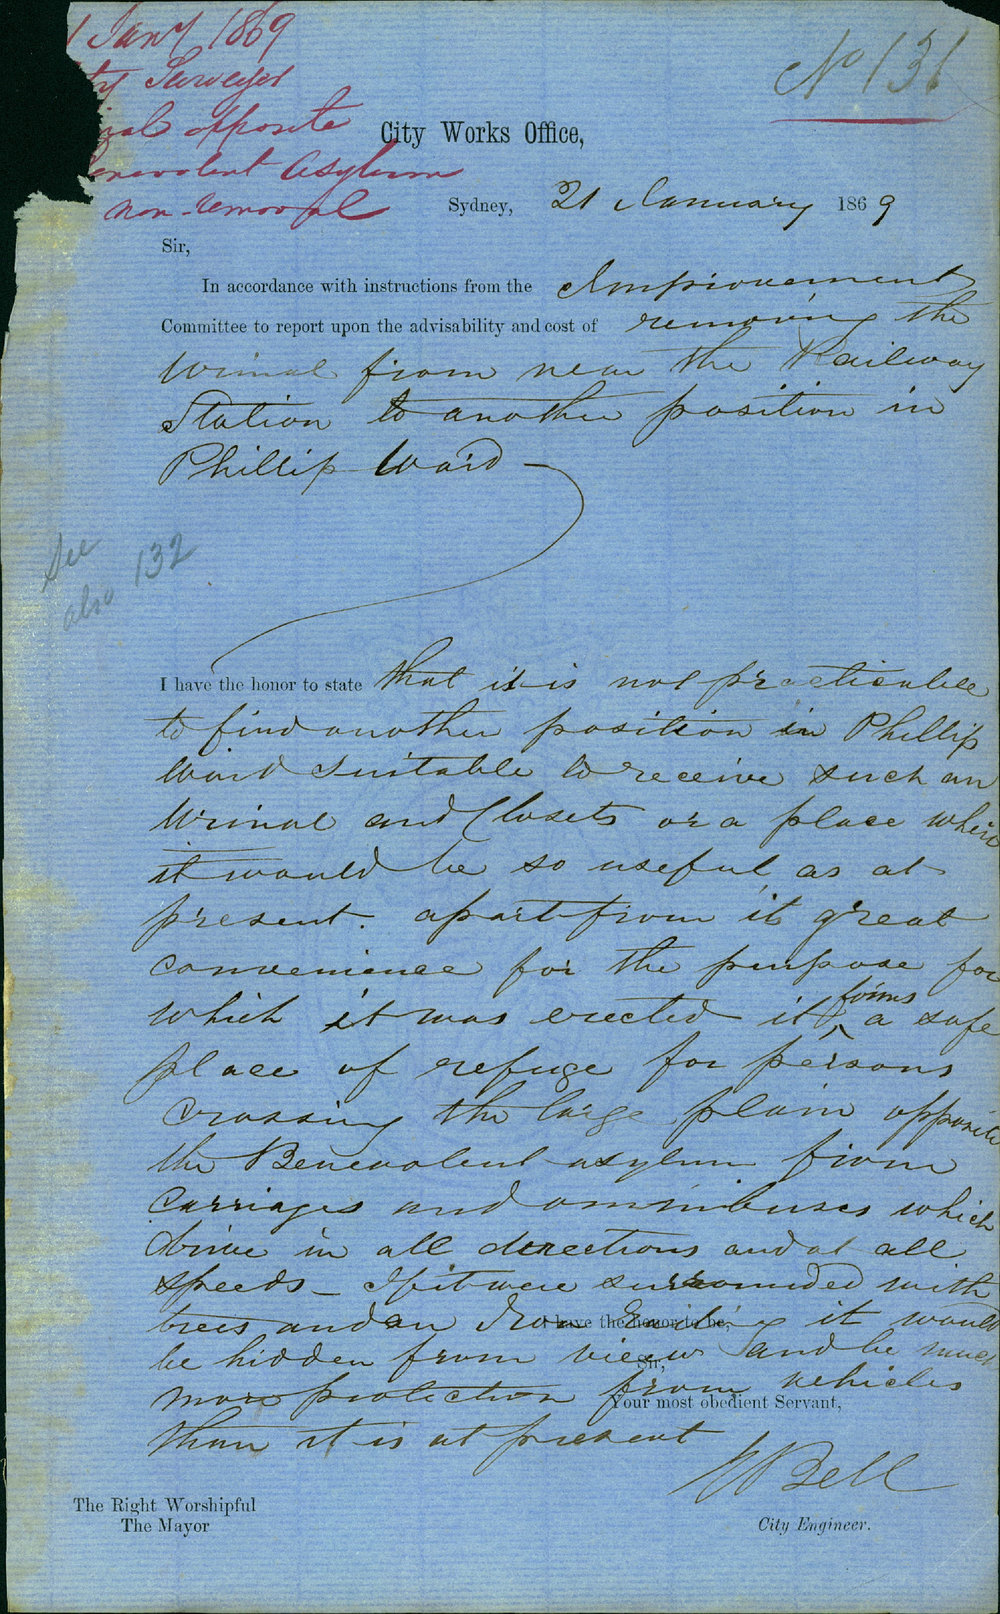 1 Jany 1869
ty Surveyor
inal opposite
enevolent Asylum
non-removal
No 131
City Works Office,
Sydney, 21 January 1869
Sir,
In accordance with instructions from the Improvement
Committee to report upon the advisability and cost of removing the
Urinal from near the Railway
Station to another position in
Phillip Ward
See
also 132
I have the honor to state that it is not practicable
to find another position in Phillip
Ward suitable to receive such an
Urinal and Closets or a place where
it would be so useful as at
present. apart from it great
convenience for the purpose for
which it was erected it forms a safe
place of refuge for persons
crossing the large plain opposite
the Benevolent asylum from
Carriages and omnibuses which
drive in all directions and at all
speeds - If it were surrounded with
trees and an Iron Railing it would
I have the honor to be,
be hidden from view and be much
Sir,
more protection from vehicles
Your most obedient Servant,
than it is at present
Bell
The Right Worshipful
The Mayor
City Engineer.